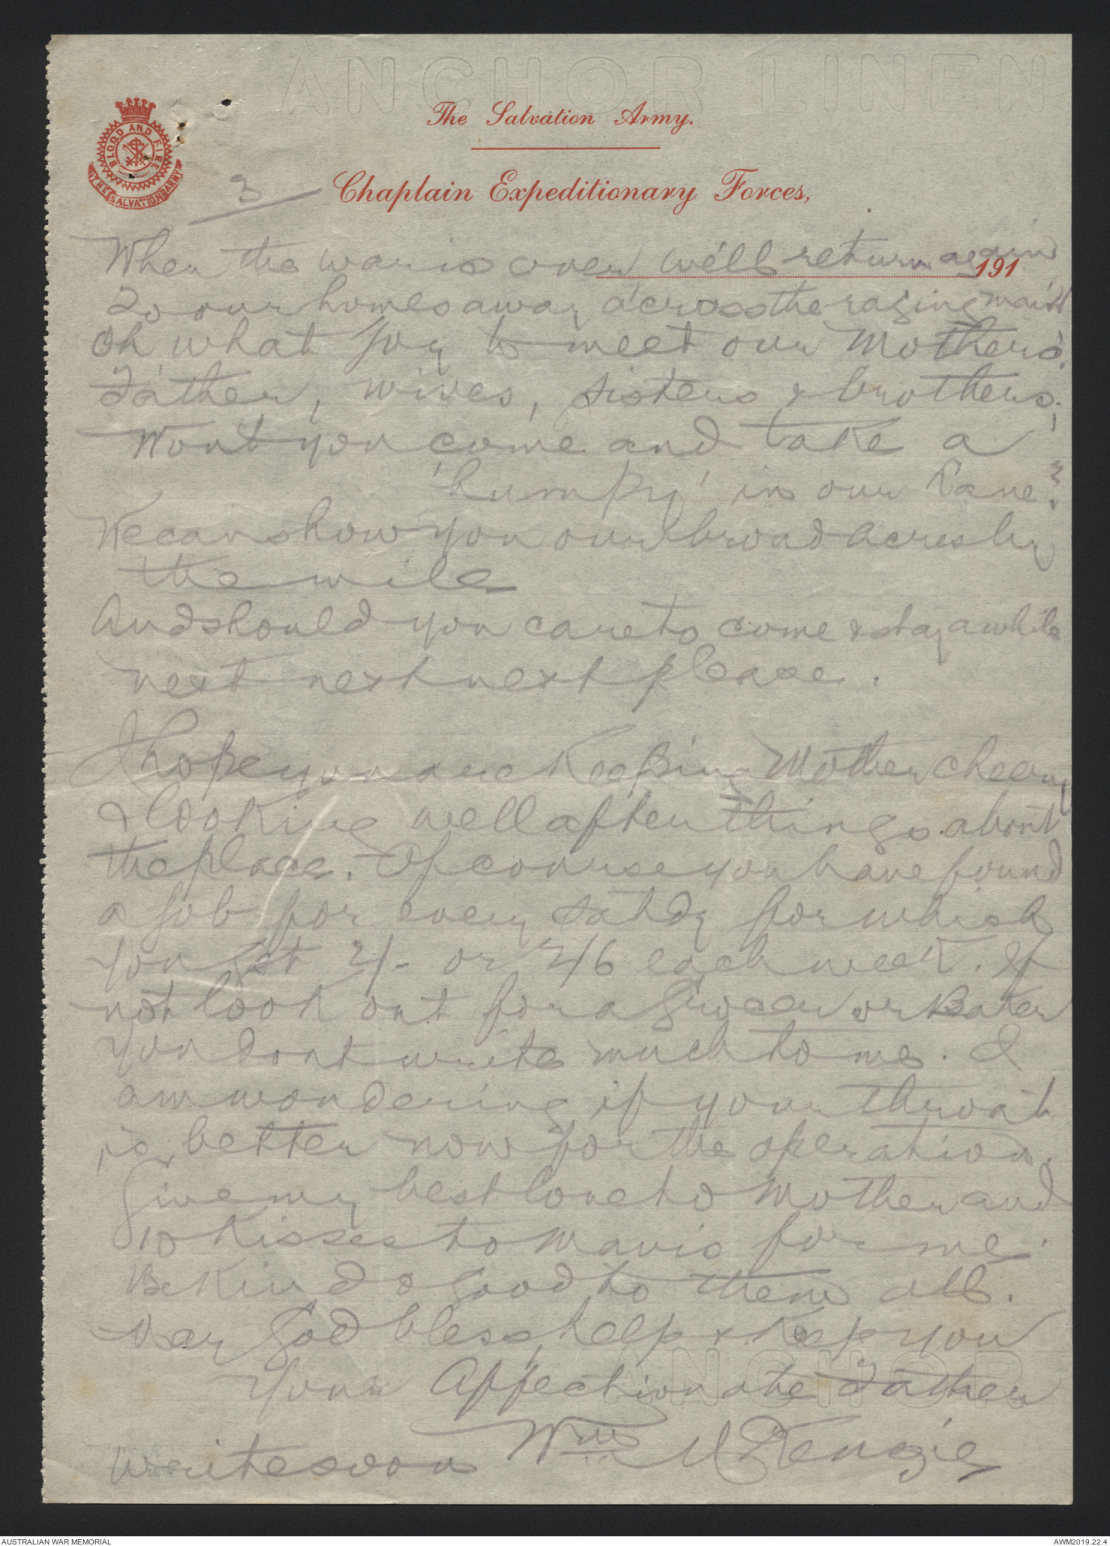 ANCHOR LINEN
The Salvation Army.
BLOOD AND FIRE
THE SALVATION ARMY
3
Chaplain Expeditionary Forces,
191
When the war is over we'll return again
To our homes away, across the raging main
Oh what joy to meet our Mothers,
Father, wives, sisters & brothers.
Wont you come and take a
'humpy' in our Lane?
We can show you our broad acres by
the mile
And should you care to come & stay a while
next next next please.
I hope you are keeping Mother cheery
& looking well after things about
the place. Of course you have found
a job for every Satdy for which
you get 2/- or 2/6 each week. If
not look out for a Grocer or Baker
You dont write much to me. I
am wondering if your throat
is better now for the operation.
Give my best love to Mother and
10 Kisses to Mavis for me.
Be Kind & good to them all.
May God bless, help & Keep you
Your Affectionate Father
Wm McKenzie
Write soon
ANCHOR
AUSTRALIAN WAR MEMORIAL
AWM2019.22.4